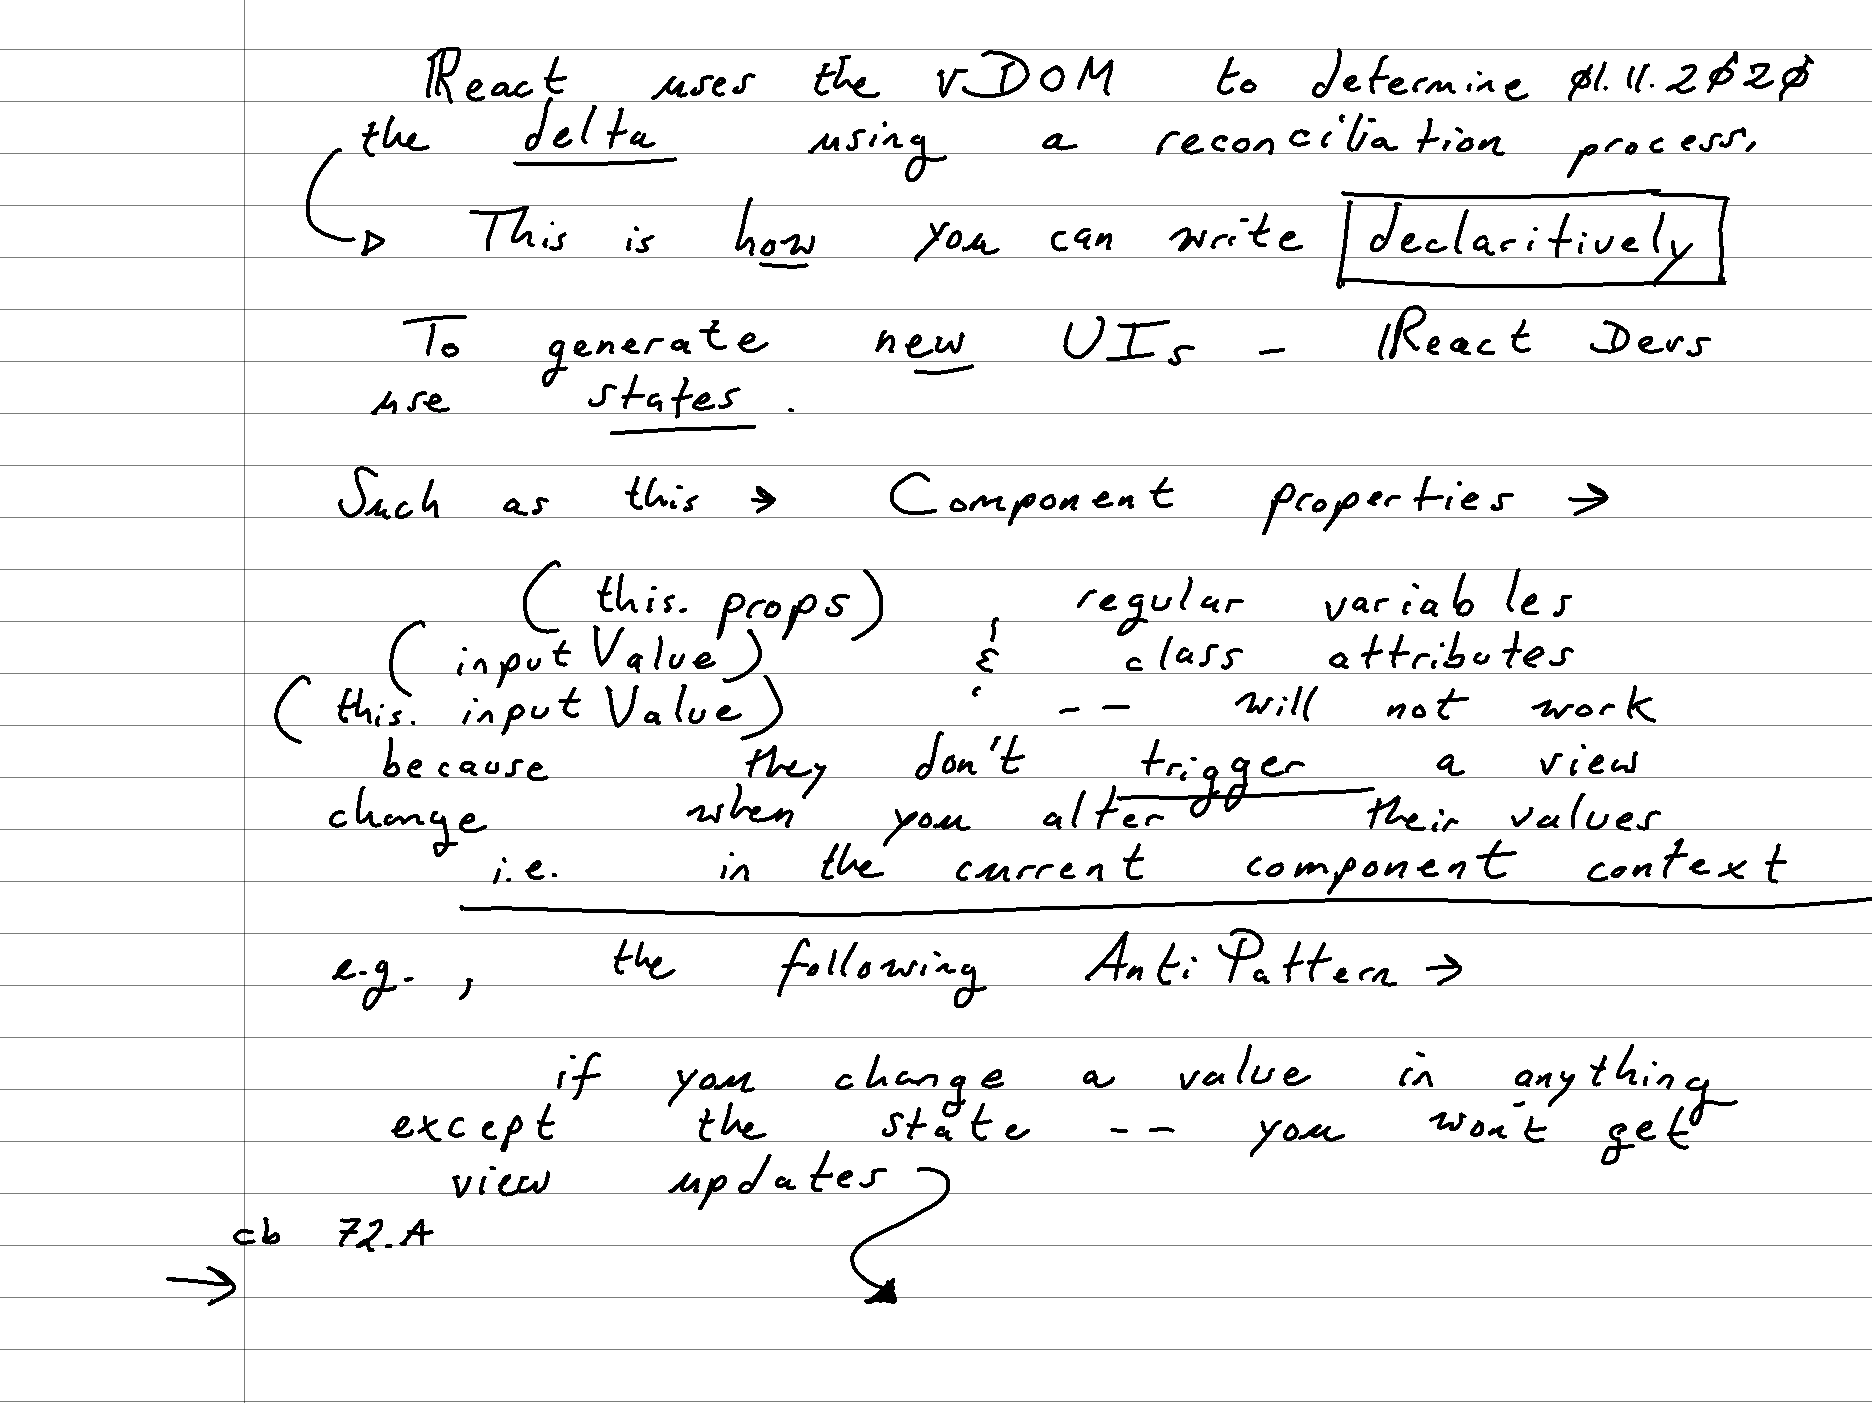 React uses the vDOM to determine 01.11.2020
the delta using a reconciliation process.
→ This is how you can write declaritively
To generate new UIs - React Devs
use states.
Such as this → Component properties →
(this.props) regular variables
(inputValue) & class attributes
(this.inputValue) -- will not work
because they don't trigger a view
change when you alter their values
i.e. in the current component context
e.g., the following AntiPattern →
if you change a value in anything
except the state -- you won't get
view updates
cb 72.A
→